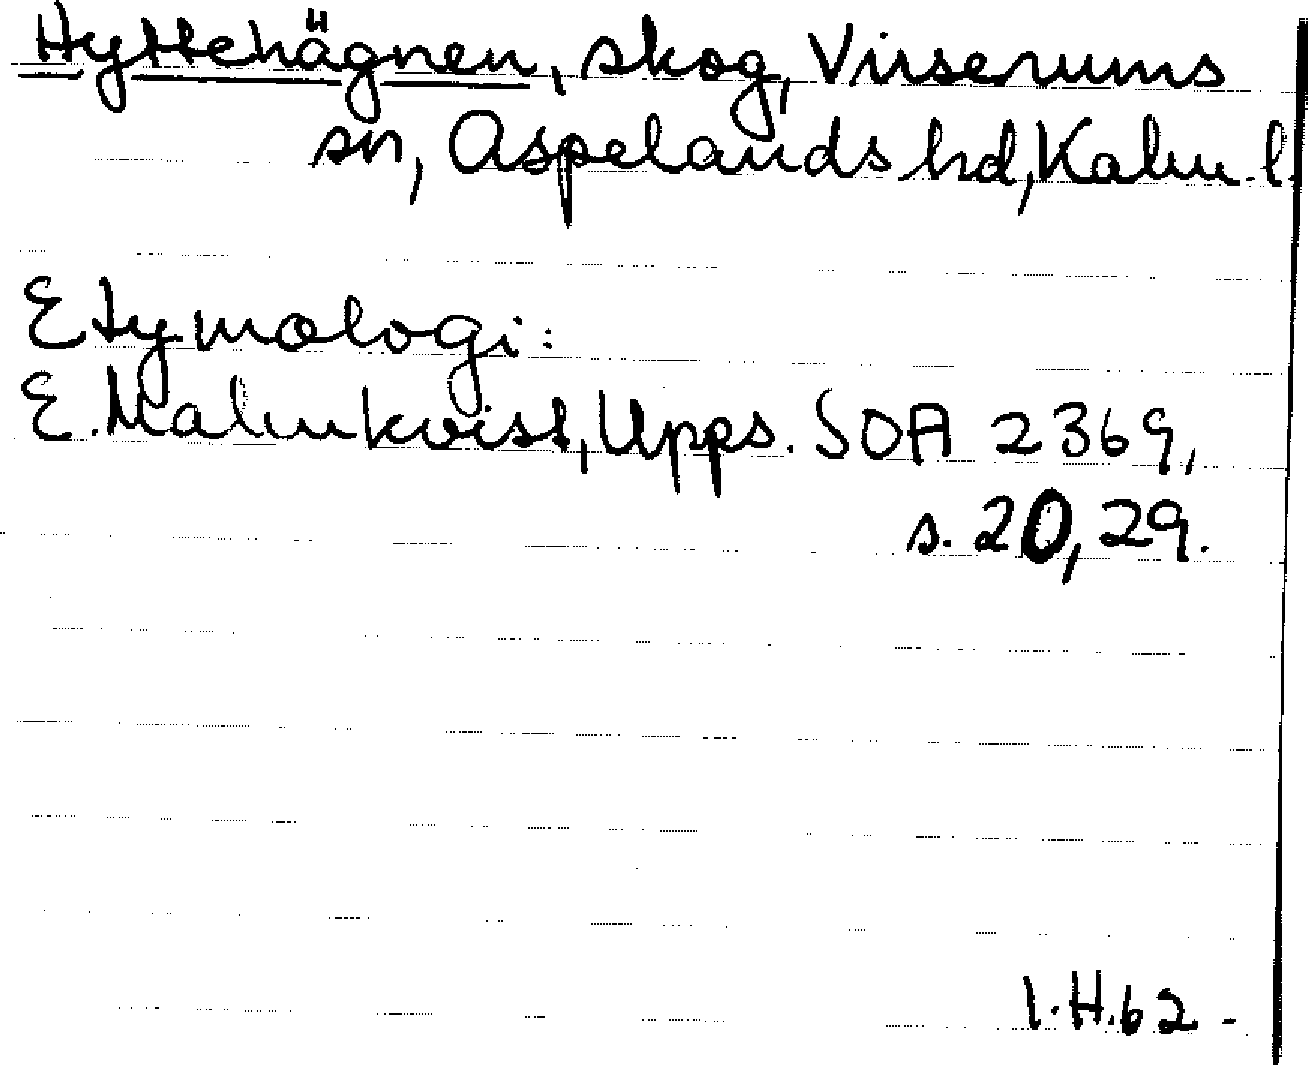 Hyttehägnen, skog, Virserums
sn, Aspelands hd, Kalm. l.
Etymologi:
E. Malmkvist, Upps. SOA 2369,
s. 20, 29.
I.H.62 -